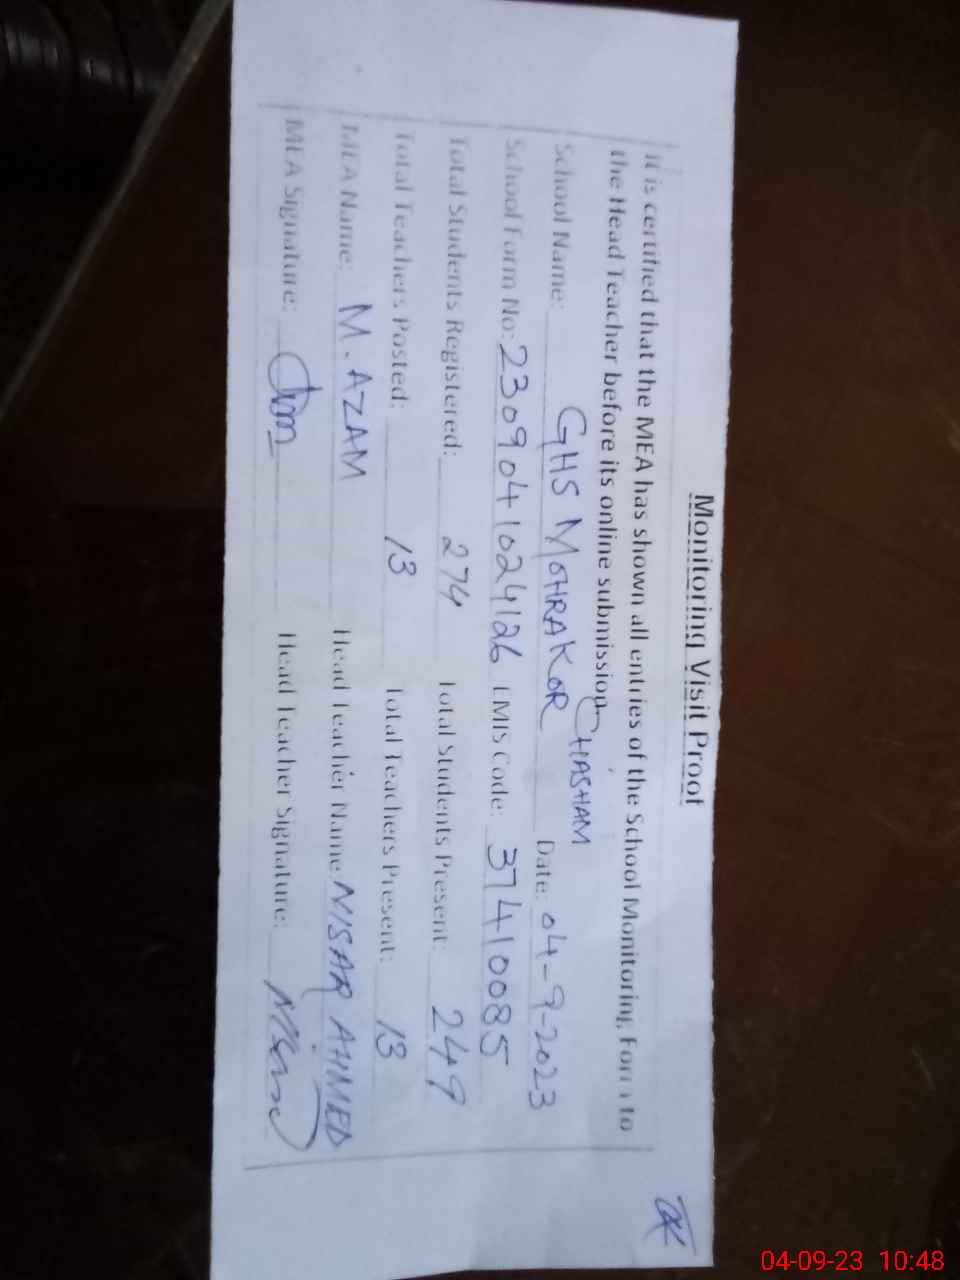 Monitoring Visit Proof
It is certified that the MEA has shown all entries of the School Monitoring Form to
the Head Teacher before its online submission.
School Name: GHS MOHRA KOR CHASHAM Date: 04-9-2023
School Form No: 2309041024126 EMIS Code: 37410085
Total Students Registered: 274 Total Students Present: 249
Total Teachers Posted: 13 Total Teachers Present: 13
MEA Name: M. AZAM Head Teacher Name: NISAR AHMED
MEA Signature: Head Teacher Signature:
OK
04-09-23 10:48